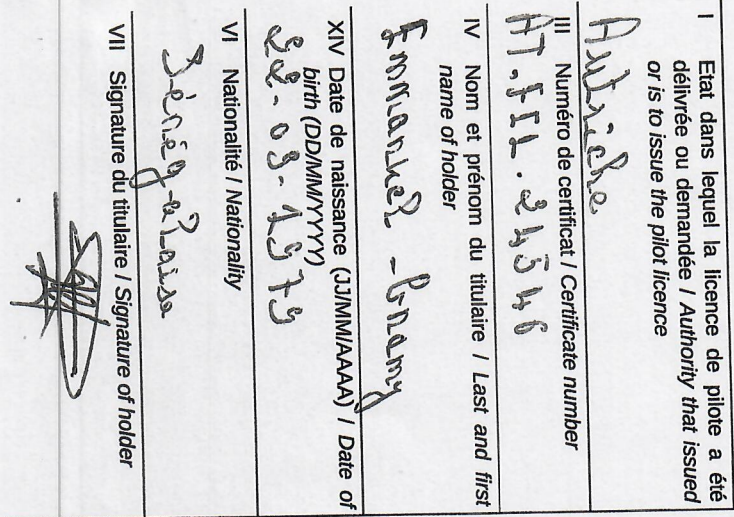 I Etat dans lequel la licence de pilote a été
délivrée ou demandée / Authority that issued
or is to issue the pilot licence
Autriche
III Numéro de certificat / Certificate number
AT.FCL.24546
IV Nom et prénom du titulaire / Last and first
name of holder
Emmanuel - Gnamy
XIV Date de naissance (JJ/MM/AAAA) / Date of
birth (DD/MM/YYYY)
VI Nationalité / Nationality
Sénégalaise
VII Signature du titulaire / Signature of holder